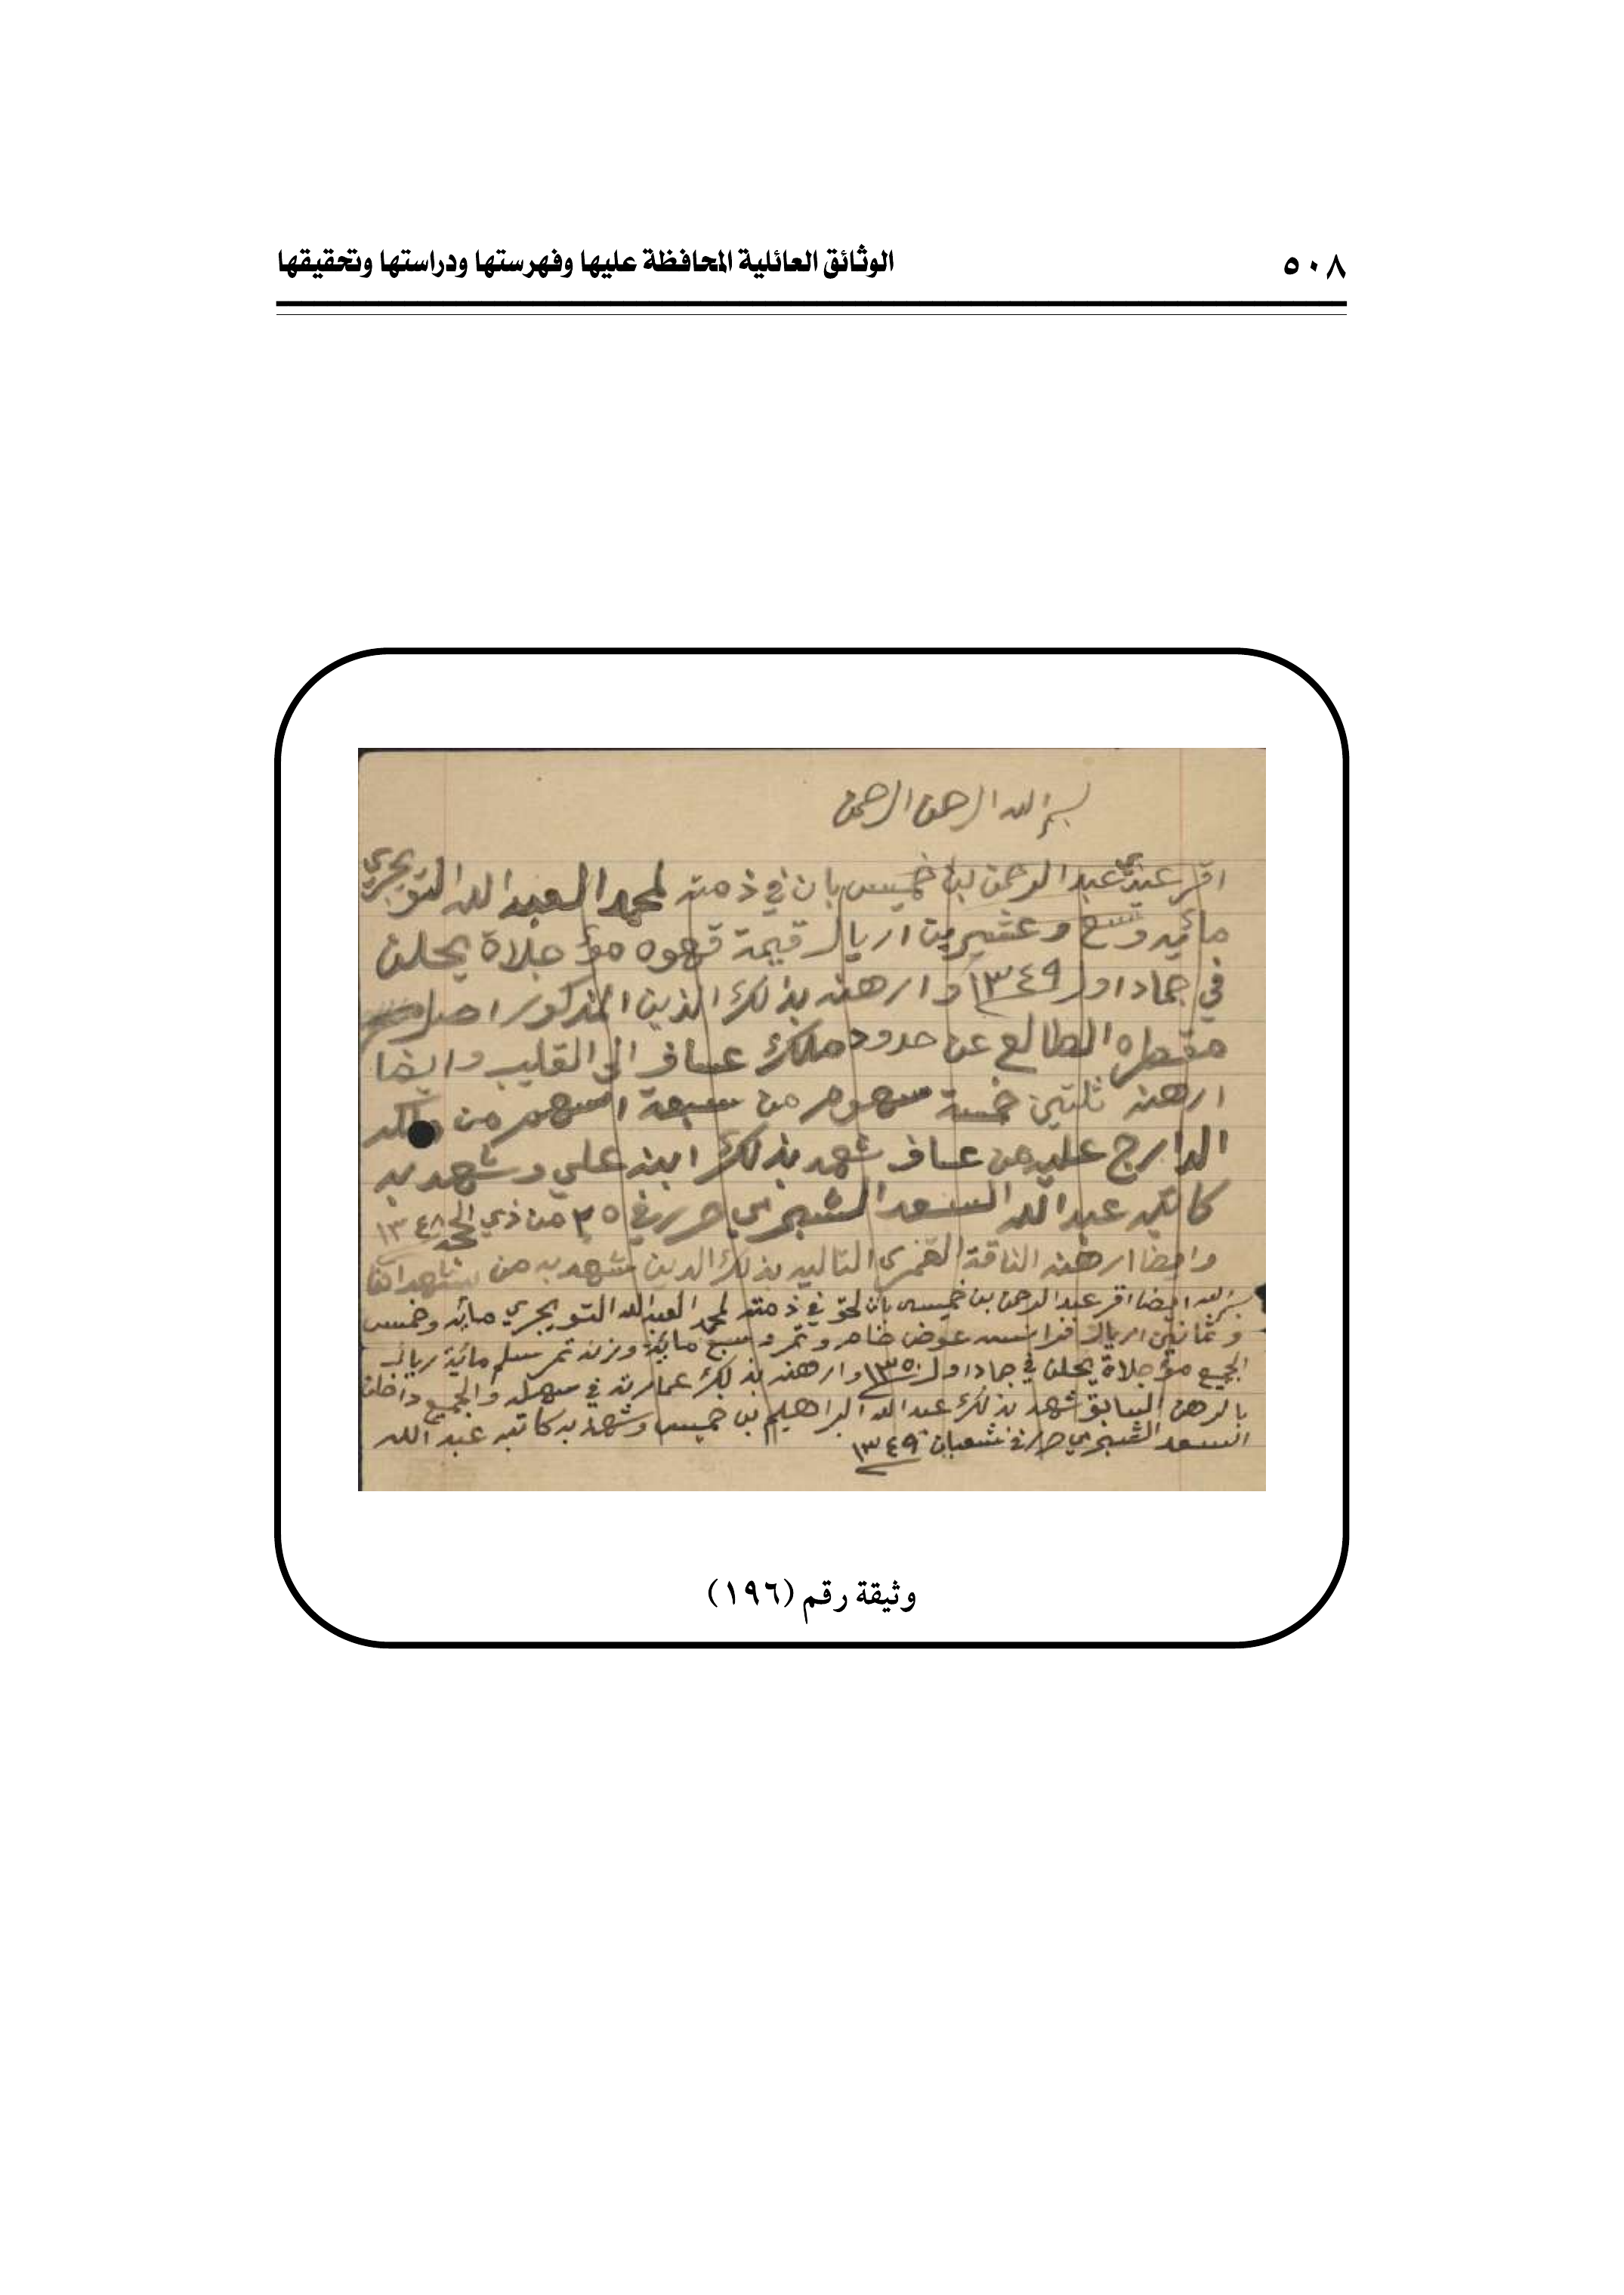 ٥٠٨
الوثائق العائلية المحافظة عليها وفهرستها ودراستها وتحقيقها
بسم الله الرحمن الرحمن
اقر عندي عبد الرحمن بن خميس بان في ذمته لمحمد العبد الله التويجري
مائيه وتسع وعشرين اريال قيمة قهوه مؤجلاة يحلن
في جماد اول ١٣٤٩ وارهنه بذلك الدين المذكور اصل
مقطره الطالع عن حدود ملك عساف الى القليب وايضا
ارهنه ثلثين خمسة سهوم من سبعة اسهم من ملكه
الدارج عليه من عساف شهد بذلك ابنه علي وشهد به
كاتبه عبد الله السعد الشبرمي حرر في ٢٥ من ذي الحجه ١٣٤٨
وايضا ارهنه الناقة القمرى التاليه بذلك الدين شهد به من شهد
بسم الله ايضا اقر عبد الرحمن بن خميس بان لحق في ذمته لمحمد العبد الله التويجري مائه وخمس
وثمانين اريال فرانسه عوض خام وتمر وسبع مائة وزنه تمر سلم مائة ريال
الجميع مؤجلاة يحلن في جماد اول ١٣٥٠ وارهنه بذلك عمارته في سهله والجميع داخلن
بالرهن السابق شهد بذلك عبد الله البراهيم بن خميس وشهد به كاتبه عبد الله
السعد الشبرمي حرر في شعبان ١٣٤٩
وثيقة رقم (١٩٦)